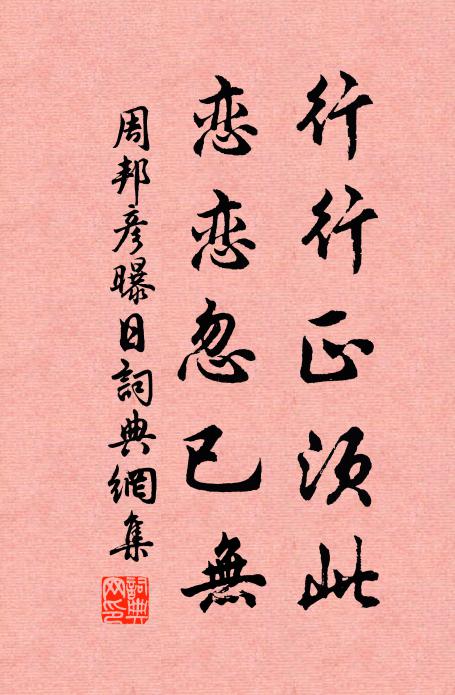 行行正須此
恋恋忽已無
周邦彦曝日詞典網集
詞典網印